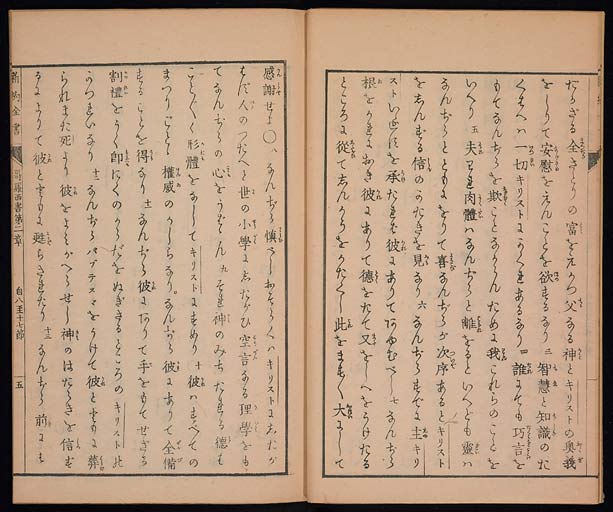 たらざる全きさとりの富をえかつ父なる神とキリストの奥義
をしりて安慰をえんことを欲するなり 三 智慧と知識のた
くはへハ一切キリストにかくれあるなり 四 誰にても巧言を
もてなんぢらを欺ことなからんため我これらのことを
いへり 五 夫われ肉體ハなんぢらと離をるといへども靈ハ
なんぢらとともにをりて喜なんぢらが次序あるとキリスト
をしんずる信のかたきを見なり 六 なんぢらすでに主キリ
ストイエスを承たれば彼にありてあゆむべし 七 なんぢら
根をかれにおき彼にありて德をたて又をしへをうけたる
ところに從てしんかうをかたくし此をますます大にして
感謝せよ 〇 八 なんぢら慎べしおそらくハキリストにしたが
はず人のつたへと世の小學にしたがひ空言なる理學をも
てなんぢらの心をうばはん 九 それ神のみちたれる德も
ことごとく形體をなしてキリストにすめり 十 彼ハすべての
まつりごとと權威のかしらなりなんぢら彼にありて全備
することを得なり 十一 なんぢら彼にありて手をもてせざる
割禮をうく即にくのからだをぬぎさるところのキリストの
かつれいなり 十二 なんぢらバプテスマをうけて彼とともに葬
られまた死より彼をよみがへらせし神のはたらきを信ず
るによりて彼とともに甦らされたり 十三 なんぢら前にも
新約全書 哥羅西書第二章 自八至十七節 一五